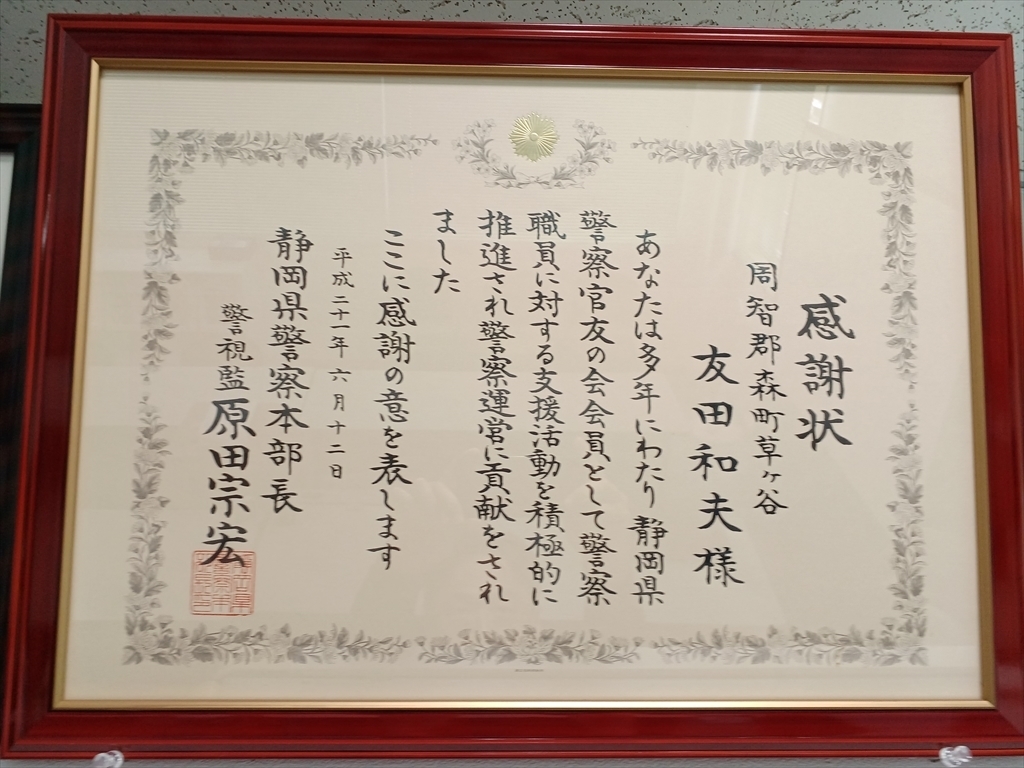 感謝状
周智郡森町草ヶ谷
友田和夫様
あなたは多年にわたり静岡県
警察官友の会会員として警察
職員に対する支援活動を積極的に
推進され警察運営に貢献をされ
ました
ここに感謝の意を表します
平成二十一年六月十二日
静岡県警察本部長
警視監 原田宗宏